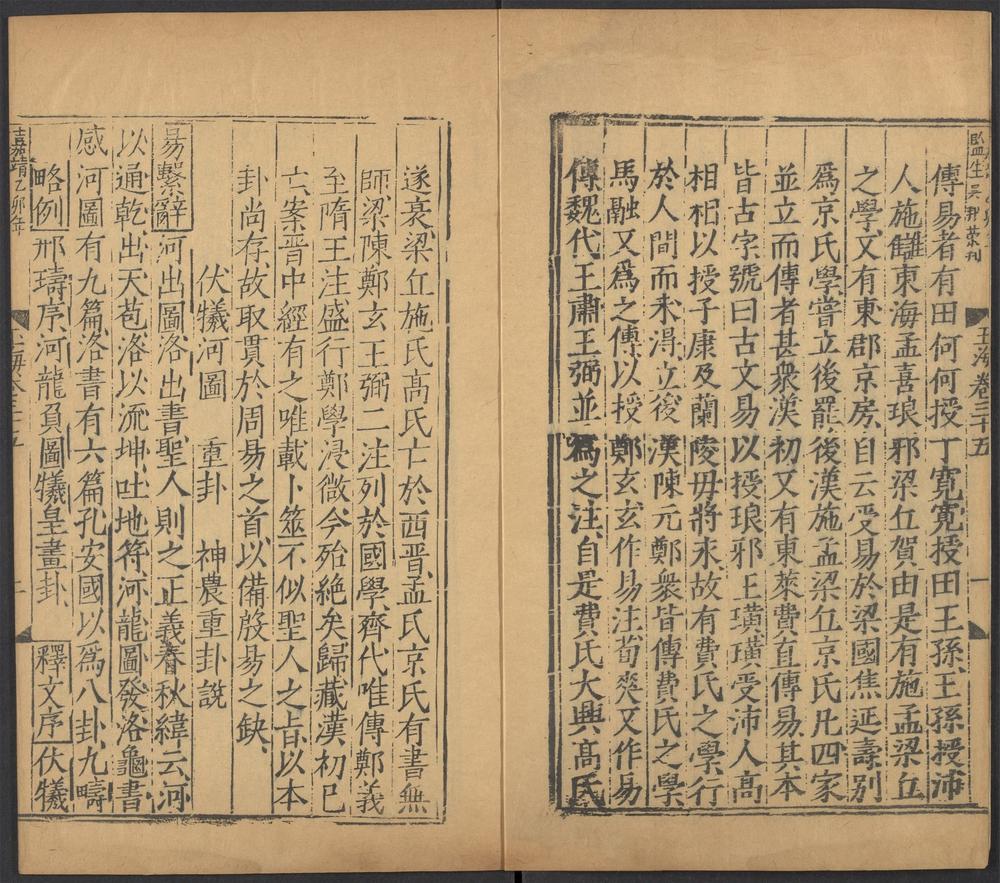 監生吳邦葉刊
玉海卷三十五
一
傳易者有田何何授丁寬寬授田王孫王孫授沛
人施讎東海孟喜琅邪梁丘賀由是有施孟梁丘
之學又有東郡京房自云受易於梁國焦延壽別
爲京氏學嘗立後罷後漢施孟梁丘京氏凡四家
並立而傳者甚衆漢初又有東萊費直傳易其本
皆古字號曰古文易以授琅邪王璜璜受沛人高
相相以授子康及蘭陵毋將永故有費氏之學行
於人間而未得立後漢陳元鄭衆皆傳費氏之學
馬融又爲之傳以授鄭玄玄作易注荀爽又作易
傳魏代王肅王弼並爲之注自是費氏大興高氏
遂衰梁丘施氏高氏亡於西晋孟氏京氏有書無
師梁陳鄭玄王弼二注列於國學齊代唯傳鄭義
至隋王注盛行鄭學浸微今殆絶矣歸藏漢初已
亡案晋中經有之唯載卜筮不似聖人之旨以本
卦尚存故取貫於周易之首以備殷易之缺
伏犧河圖 重卦 神農重卦說
易繫辭河出圖洛出書聖人則之正義春秋緯云河
以通乾出天苞洛以流坤吐地符河龍圖發洛龜書
感河圖有九篇洛書有六篇孔安國以爲八卦九疇
略例邢璹序河龍負圖犧皇畫卦 釋文序伏犧
嘉靖乙卯年